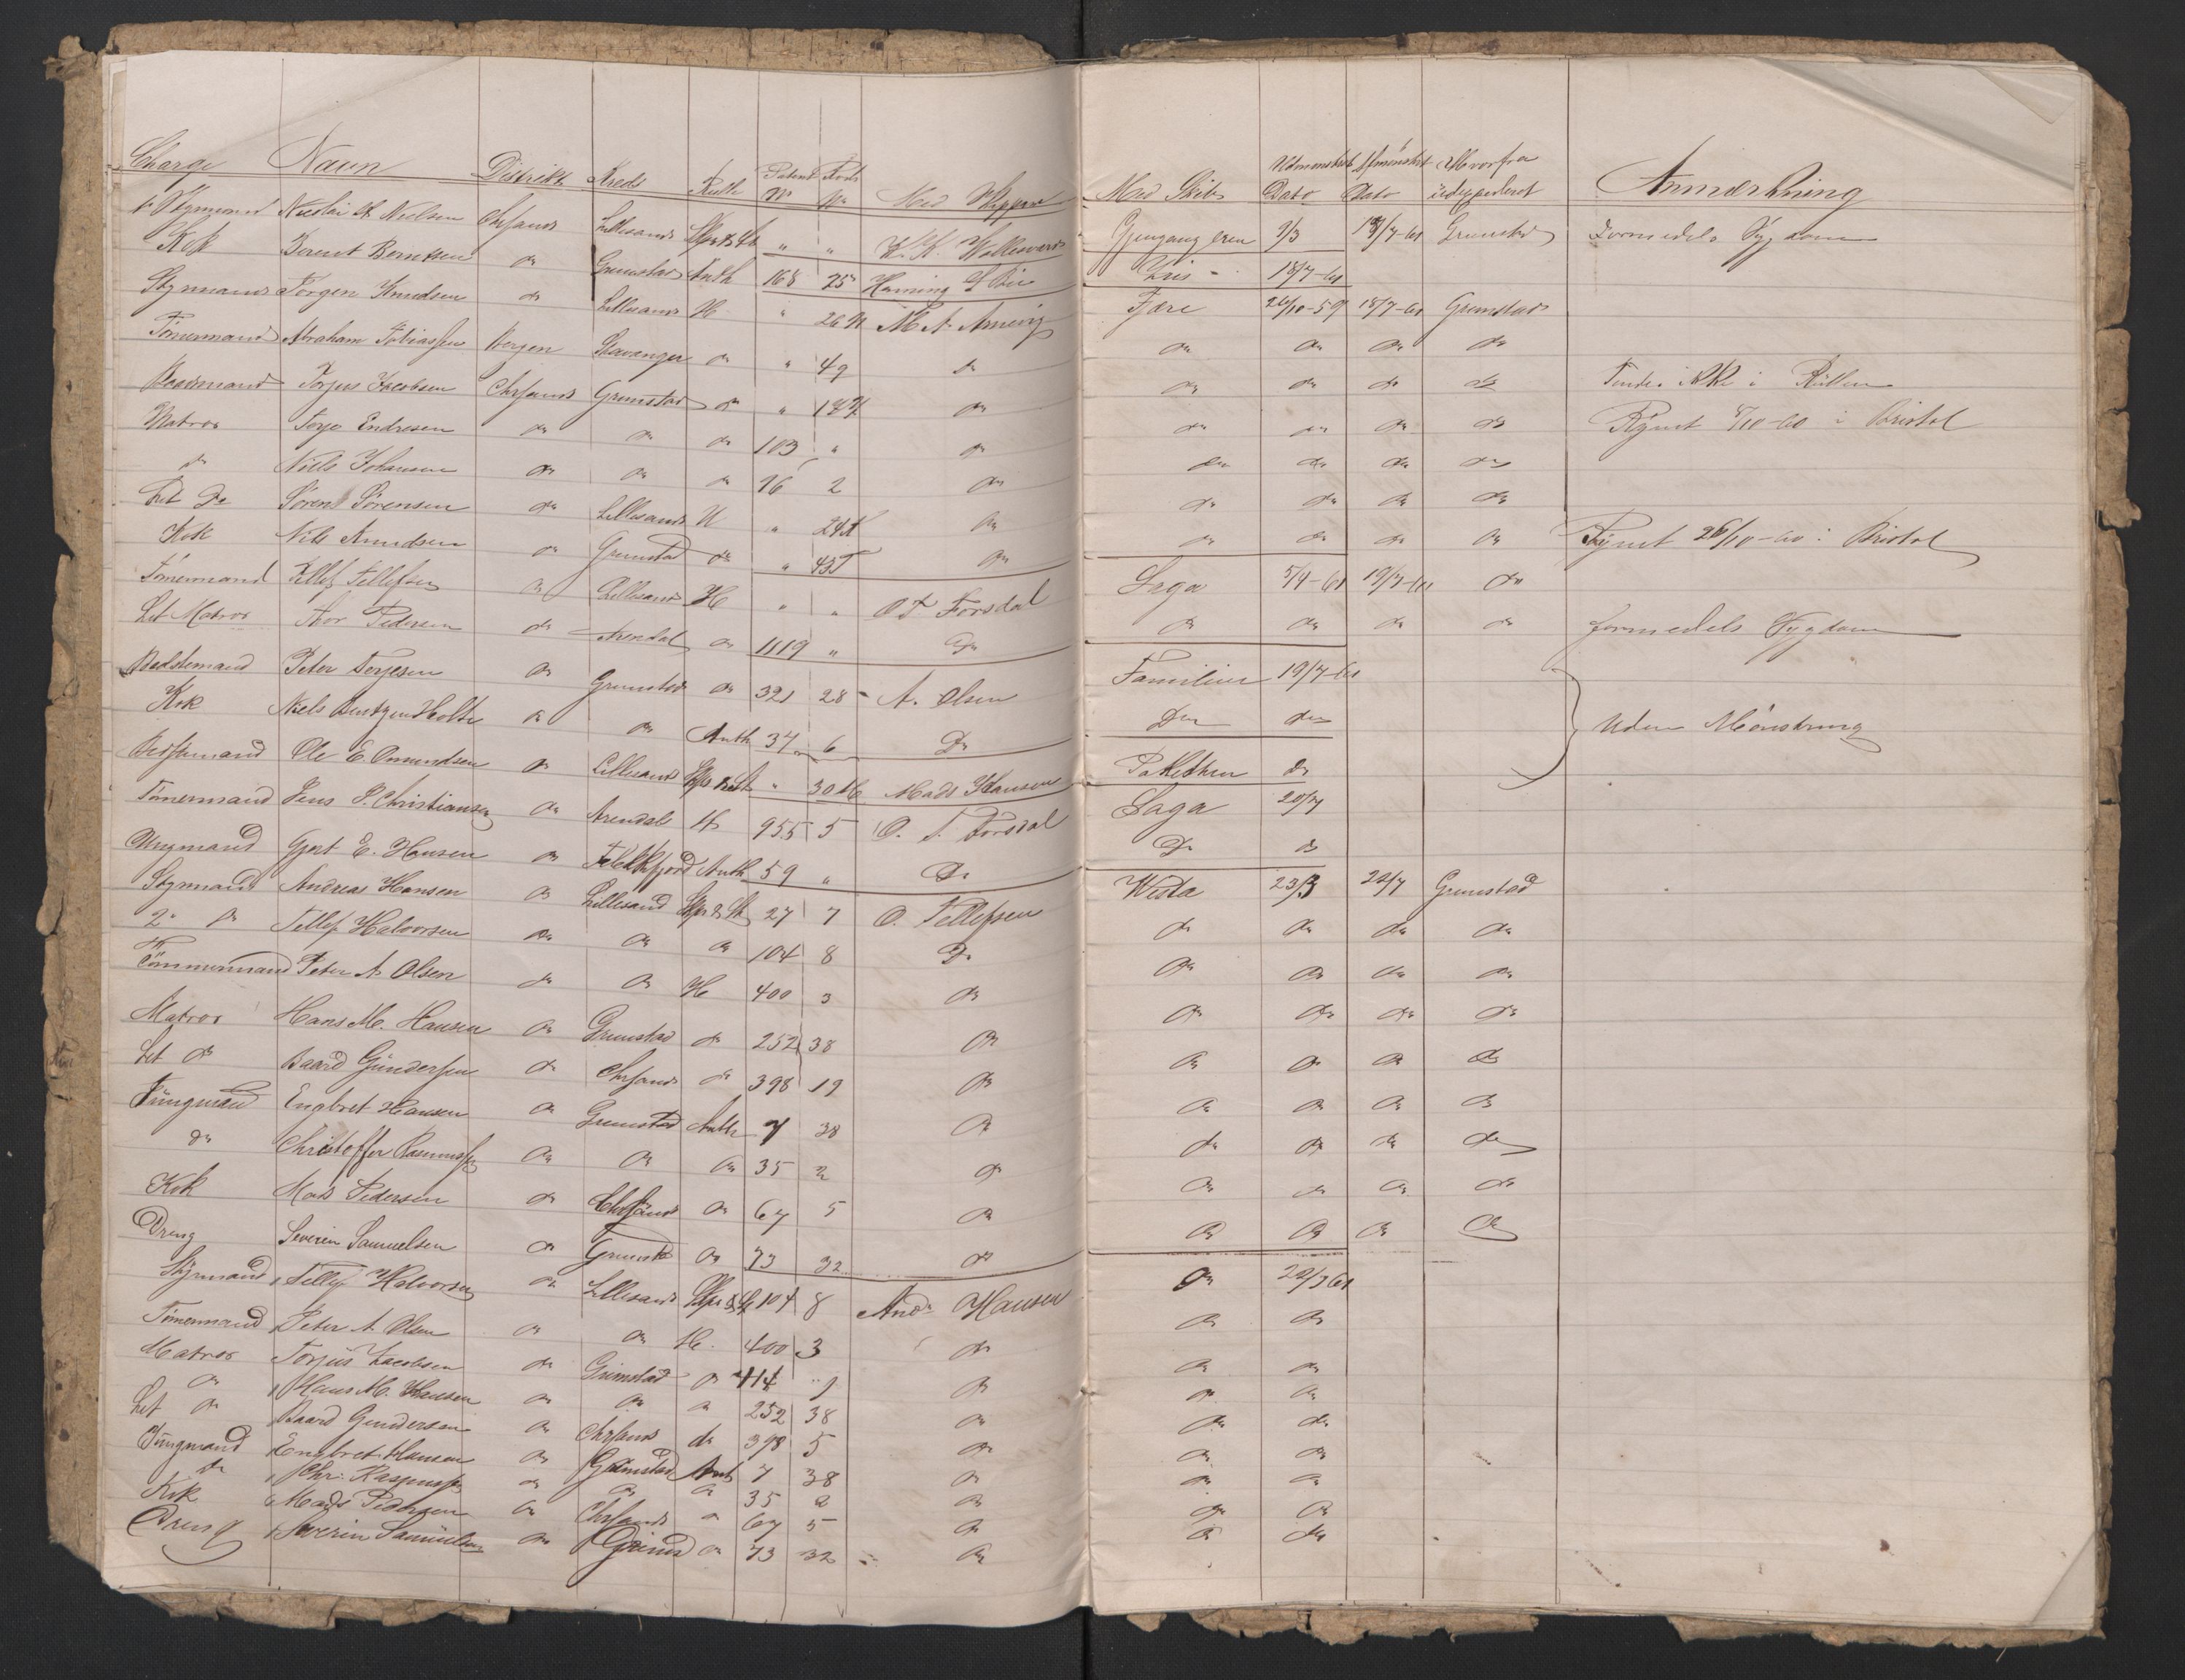 Charge Navn Distrikt Kreds Rulle Patent No Rode No Med Skipper Med Skib Udmönstret Dato Afmönstret Dato Hvorfra Anmærkning
Styrmand Nicolai Nielsen Chrsand Lillesand " " Gjengangeren 9/3 18/7-61 Grimstad Formedels Sygdom
Kok Berent Berntsen do Grimstad Anth 168 25 Iris 18/7-61
Styrmand Jörgen Knudsen do Lillesand H " Fjære 26/10-59 18/7-61 Grimstad
Tömermand Abraham Tobiassen Bergen Stavanger do " 49 do do do do do
Baadsmand Torjus Jacobsen Chrsand Grimstad do " do do do do do Findes ikke i Rullen
Matros Terje Endresen do do do 103 " do do do do do Römt /10-60 i Bristol
do Niels Johansen do do do 16 2 do do do do do
Let Do Sörent Sörensen do Lillesand H " do do do do do
Kok Nils Amundsen do Grimstad do " do do do do do Römt 26/10-60 i Bristol
Tömermand Tellef Tellefsen do Lillesand H " " O T Forsdal Saga 5/4-61 19/7-61 do
Let Matros Thor Pedersen do Arendal do 1119 " Do do do do do formedels Sygdom
Bedstemand Peter Terjesen do Grimstad do 321 28 A. Olsen Familien 19/7-61
Kok Niels Bentzen Holte do do Anth 37 6 Do Do do Uden Mönstring
Bedstemand Ole E. Omundsen do Lillesand " Mads Hansen Pakethen do
Tömermand Jens P. Christiansen do Arendal H 955 5 O. T. Forsdal Saga 20/7
Ungmand Gjert E. Hansen do Flekkefjord Anth 59 " Do Do do
Styrmand Andreas Hansen do Lillesand 27 7 O. Tellefsen Vesta 23/3 22/7 Grimstad
2. do Tellef Halvorsen do do do 104 8 Do do do do do
Tömmermand Peter A Olsen do do H 400 3 do do do do do
Matros Hans M. Hansen do Grimstad do 252 38 do do do do do
Let do Baard Gundersen do Chrsand do 398 19 do do do do do
Jüngmand Engbret Hansen do Grimstad Anth 7 38 do do do do do
do Christoffer Rasmussen do do do 35 2 do do do do do
Kok Mads Pedersen do Chrsand do 67 5 do do do do do
Dreng Severin Samuelsen do Grimstd do 73 32 do do do do do
Styrmand Tellef Halvorsen do Lillesand 104 8 Andr Hansen do 22/7 61
Tömermand Peter A Olsen do do H. 400 3 do do do
Matros Torjus Jacobsen do Grimstad do 414 do do do
do Hans M. Hansen do do do 252 38 do do do
Let do Baard Gundersen do Chrsand do 398 5 do do do
Jüngmand Engbret Hansen do Grimstad Anth 7 38 do do do
do Chr. Rasmussen do do do 35 2 do do do
Kok Mads Pedersen do Chrsand do 67 5 do do do
Dreng Severin Samuelsen do Grimsd do 73 32 do do do